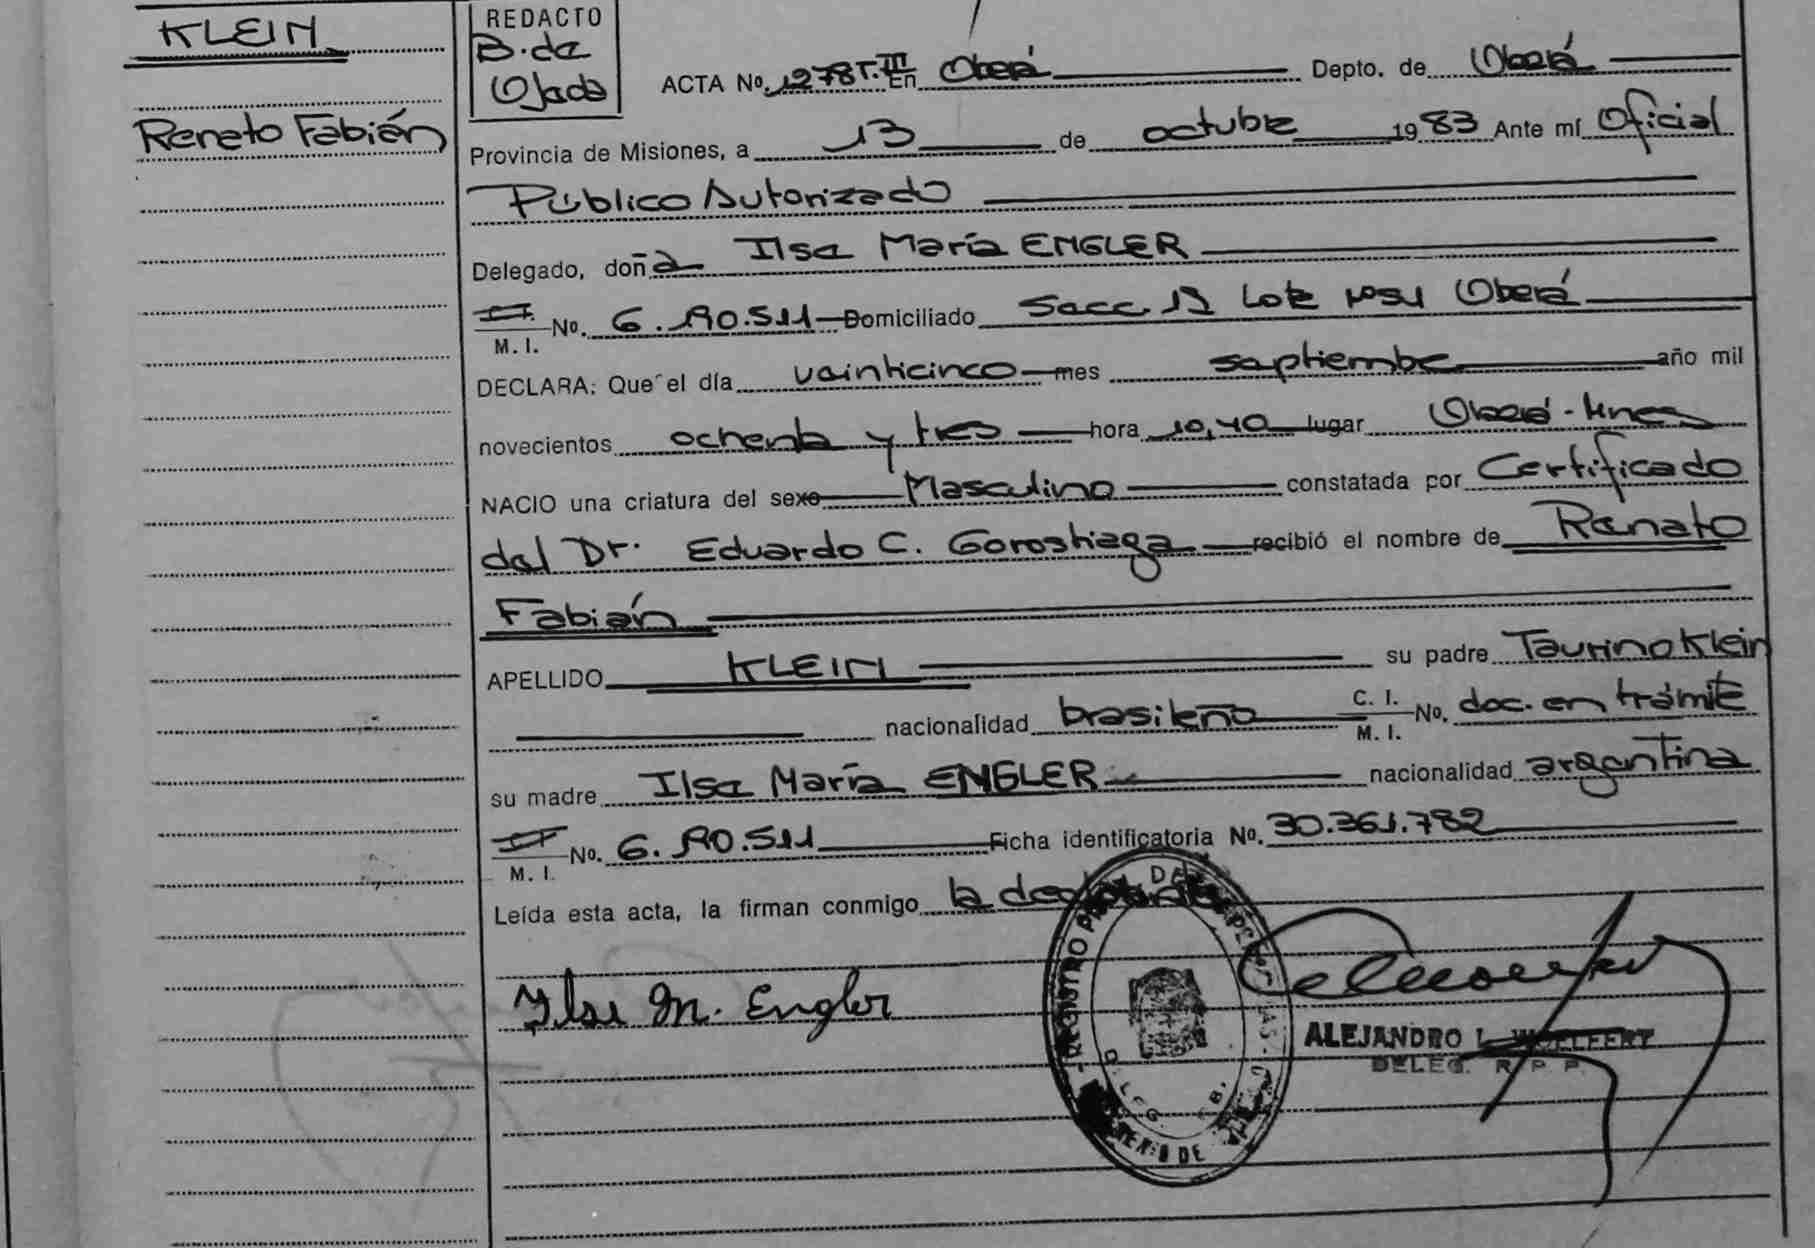 KLEIN
Renato Fabián
REDACTO
B. de
Ojeda
ACTA No. 1278 T. III En Oberá Depto. de Oberá
Provincia de Misiones, a 13 de octubre 1983 Ante mí Oficial
Público Autorizado
Delegado, doña Ilsa María ENGLER
M. I. No. 6.190.511 Domiciliado Secc. 13 Lote Oberá
DECLARA: Que el día veinticinco mes septiembre año mil
novecientos ochenta y tres hora 10,40 lugar Oberá - Mnes
NACIO una criatura del sexo Masculino constatada por Certificado
del Dr. Eduardo C. Gorostiaga recibió el nombre de Renato
Fabián
APELLIDO KLEIN su padre Taurino Klein
nacionalidad brasileño C. I. M. I. No. doc. en trámite
su madre Ilsa María ENGLER nacionalidad argentina
M. I. No. 6.190.511 Ficha identificatoria No. 30.361.782
Leída esta acta, la firman conmigo la
Ilse M. Engler
REGISTRO DE
ALEJANDRO L.
DELEG. R. P. P.